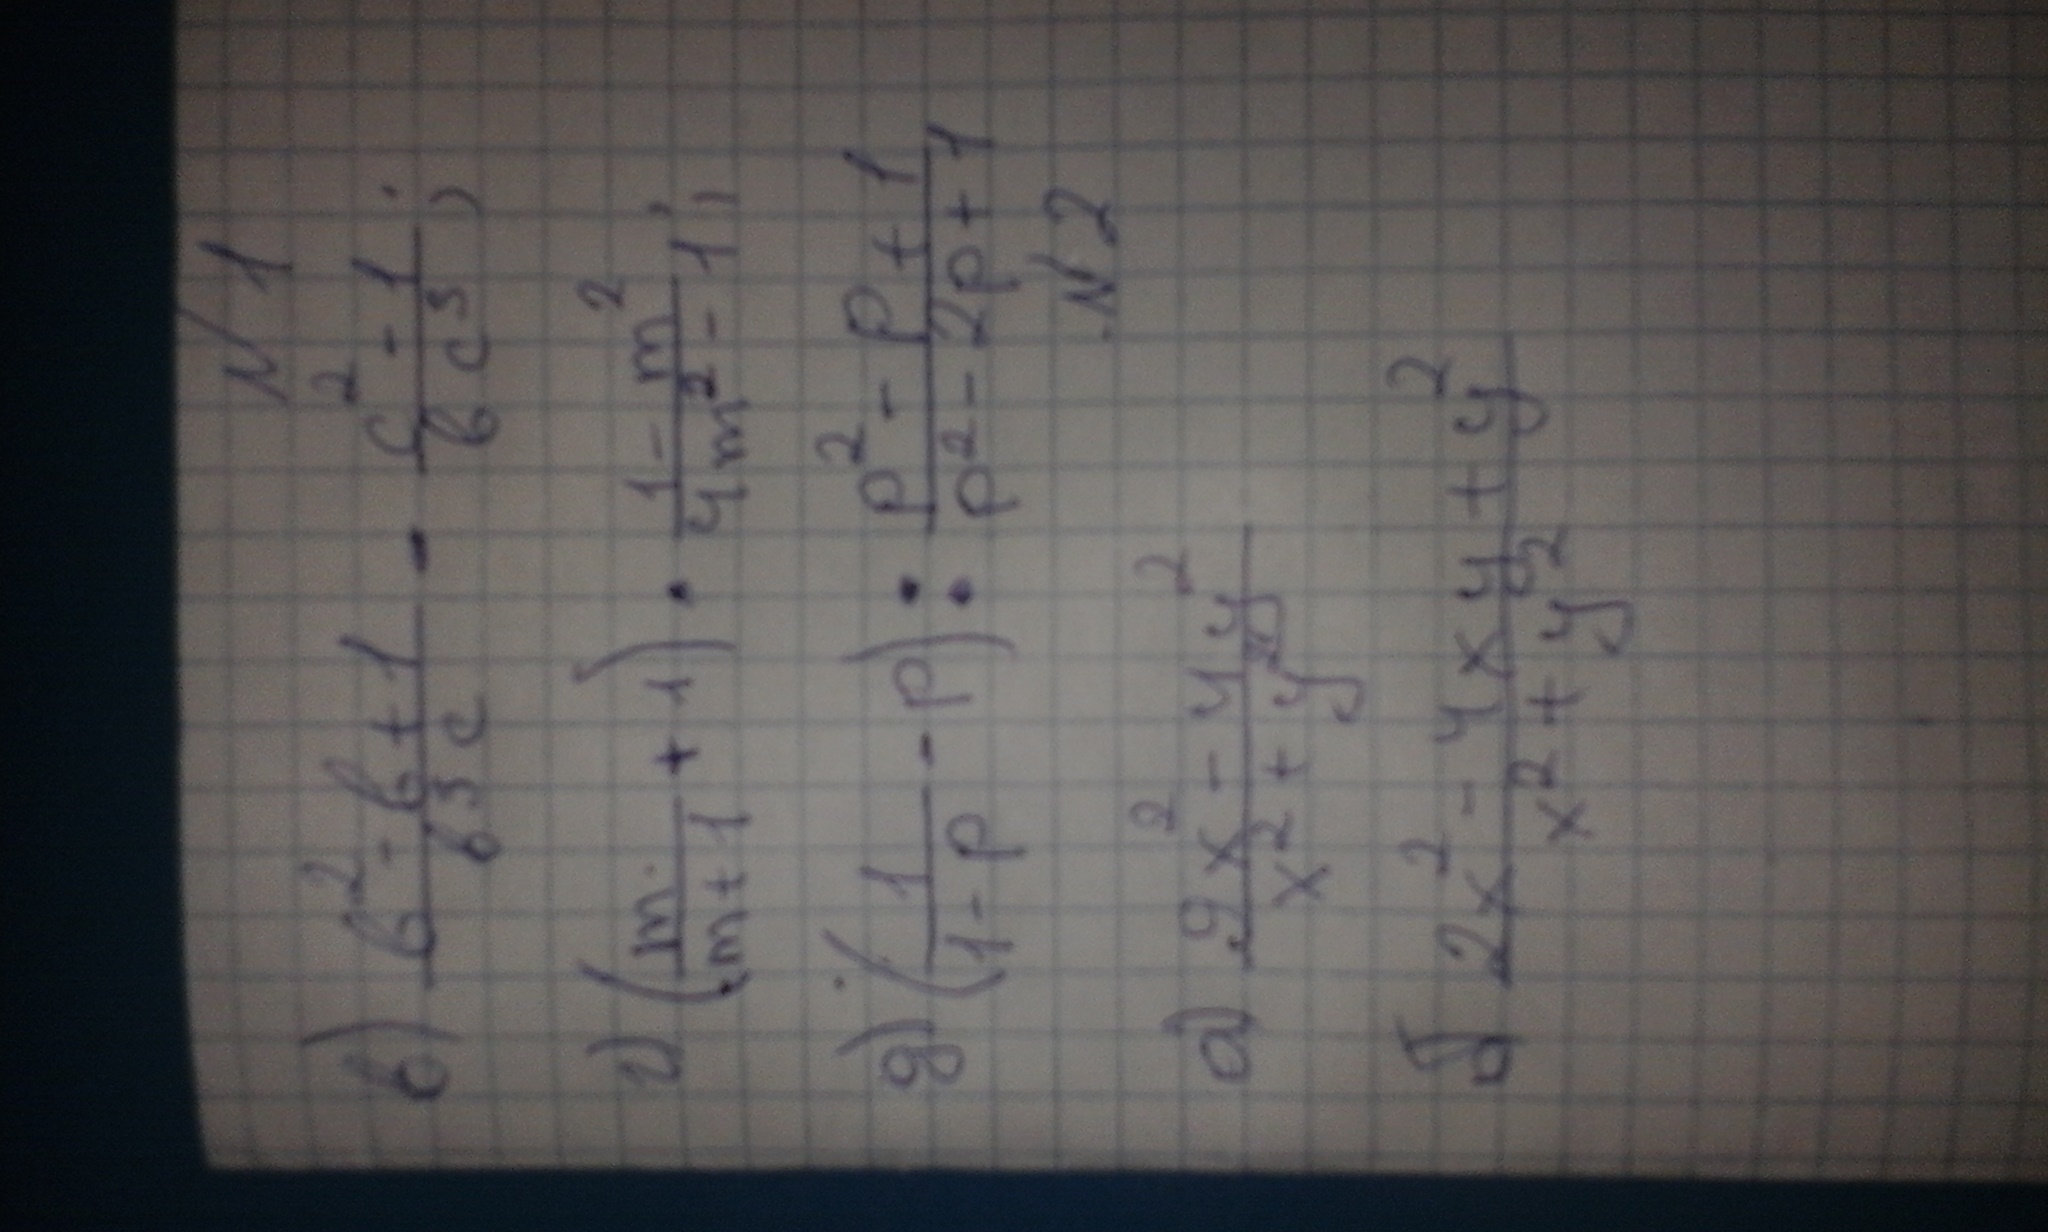 N 1
в) (b² - b + 1)/(b³c) · (c² - 1)/(bc³);
г) (m/(m + 1) + 1) · (1 - m²)/(4m² - 1);
д) (1/(1 - p) - p) : (p² - p + 1)/(p² - 2p + 1)
N 2
а) (2x² - 4y²)/(x² + y²)
б) (2x² - 4xy + y²)/(x² + y²)